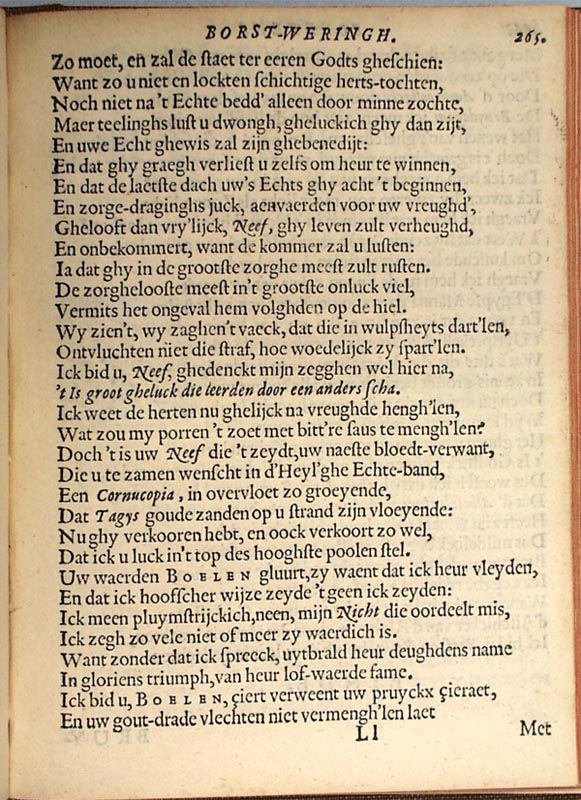 BORST-WERINGH. 265.
Zo moet, en zal de ſtaet ter eeren Godts gheſchien:
Want zo u niet en lockten ſchichtige herts-tochten,
Noch niet na 't Echte bedd' alleen door minne zochte,
Maer teelinghs luſt u dwongh, gheluckich ghy dan zijt,
En uwe Echt ghewis zal zijn ghebenedijt:
En dat ghy graegh verlieſt u zelfs om heur te winnen,
En dat de laetſte dach uw's Echts ghy acht 't beginnen,
En zorge-draginghs juck, aenvaerden voor uw vreughd',
Ghelooft dan vry'lijck, Neef, ghy leven zult verheughd,
En onbekommert, want de kommer zal u luſten:
Ia dat ghy in de grootſte zorghe meeſt zult ruſten.
De zorghelooſte meeſt in't grootſte onluck viel,
Vermits het ongeval hem volghden op de hiel.
Wy zien't, wy zaghen't vaeck, dat die in wulpſheyts dart'len,
Ontvluchten niet die ſtraf, hoe woedelijck zy ſpart'len.
Ick bid u, Neef, ghedenckt mijn zegghen wel hier na,
't Is groot gheluck die leerden door een anders ſcha.
Ick weet de herten nu ghelijck na vreughde hengh'len,
Wat zou my porren 't zoet met bitt're ſaus te mengh'len?
Doch 't is uw Neef die 't zeydt, uw naeſte bloedt-verwant,
Die u te zamen wenſcht in d'Heyl'ghe Echte-band,
Een Cornucopia, in overvloet zo groeyende,
Dat Tagys goude zanden op u ſtrand zijn vloeyende:
Nu ghy verkooren hebt, en oock verkoort zo wel,
Dat ick u luck in't top des hooghſte poolen ſtel.
Uw waerden BOELEN gluurt, zy waent dat ick heur vleyden,
En dat ick hooſſcher wijze zeyde 't geen ick zeyden:
Ick meen pluymſtrijckich, neen, mijn Nicht die oordeelt mis,
Ick zegh zo vele niet of meer zy waerdich is.
Want zonder dat ick ſpreeck, uytbrald heur deughdens name
In gloriens triumph, van heur lof-waerde fame.
Ick bid u, BOELEN, çiert verweent uw pruyckx çieraet,
En uw gout-drade vlechten niet vermengh'len laet
Ll Met